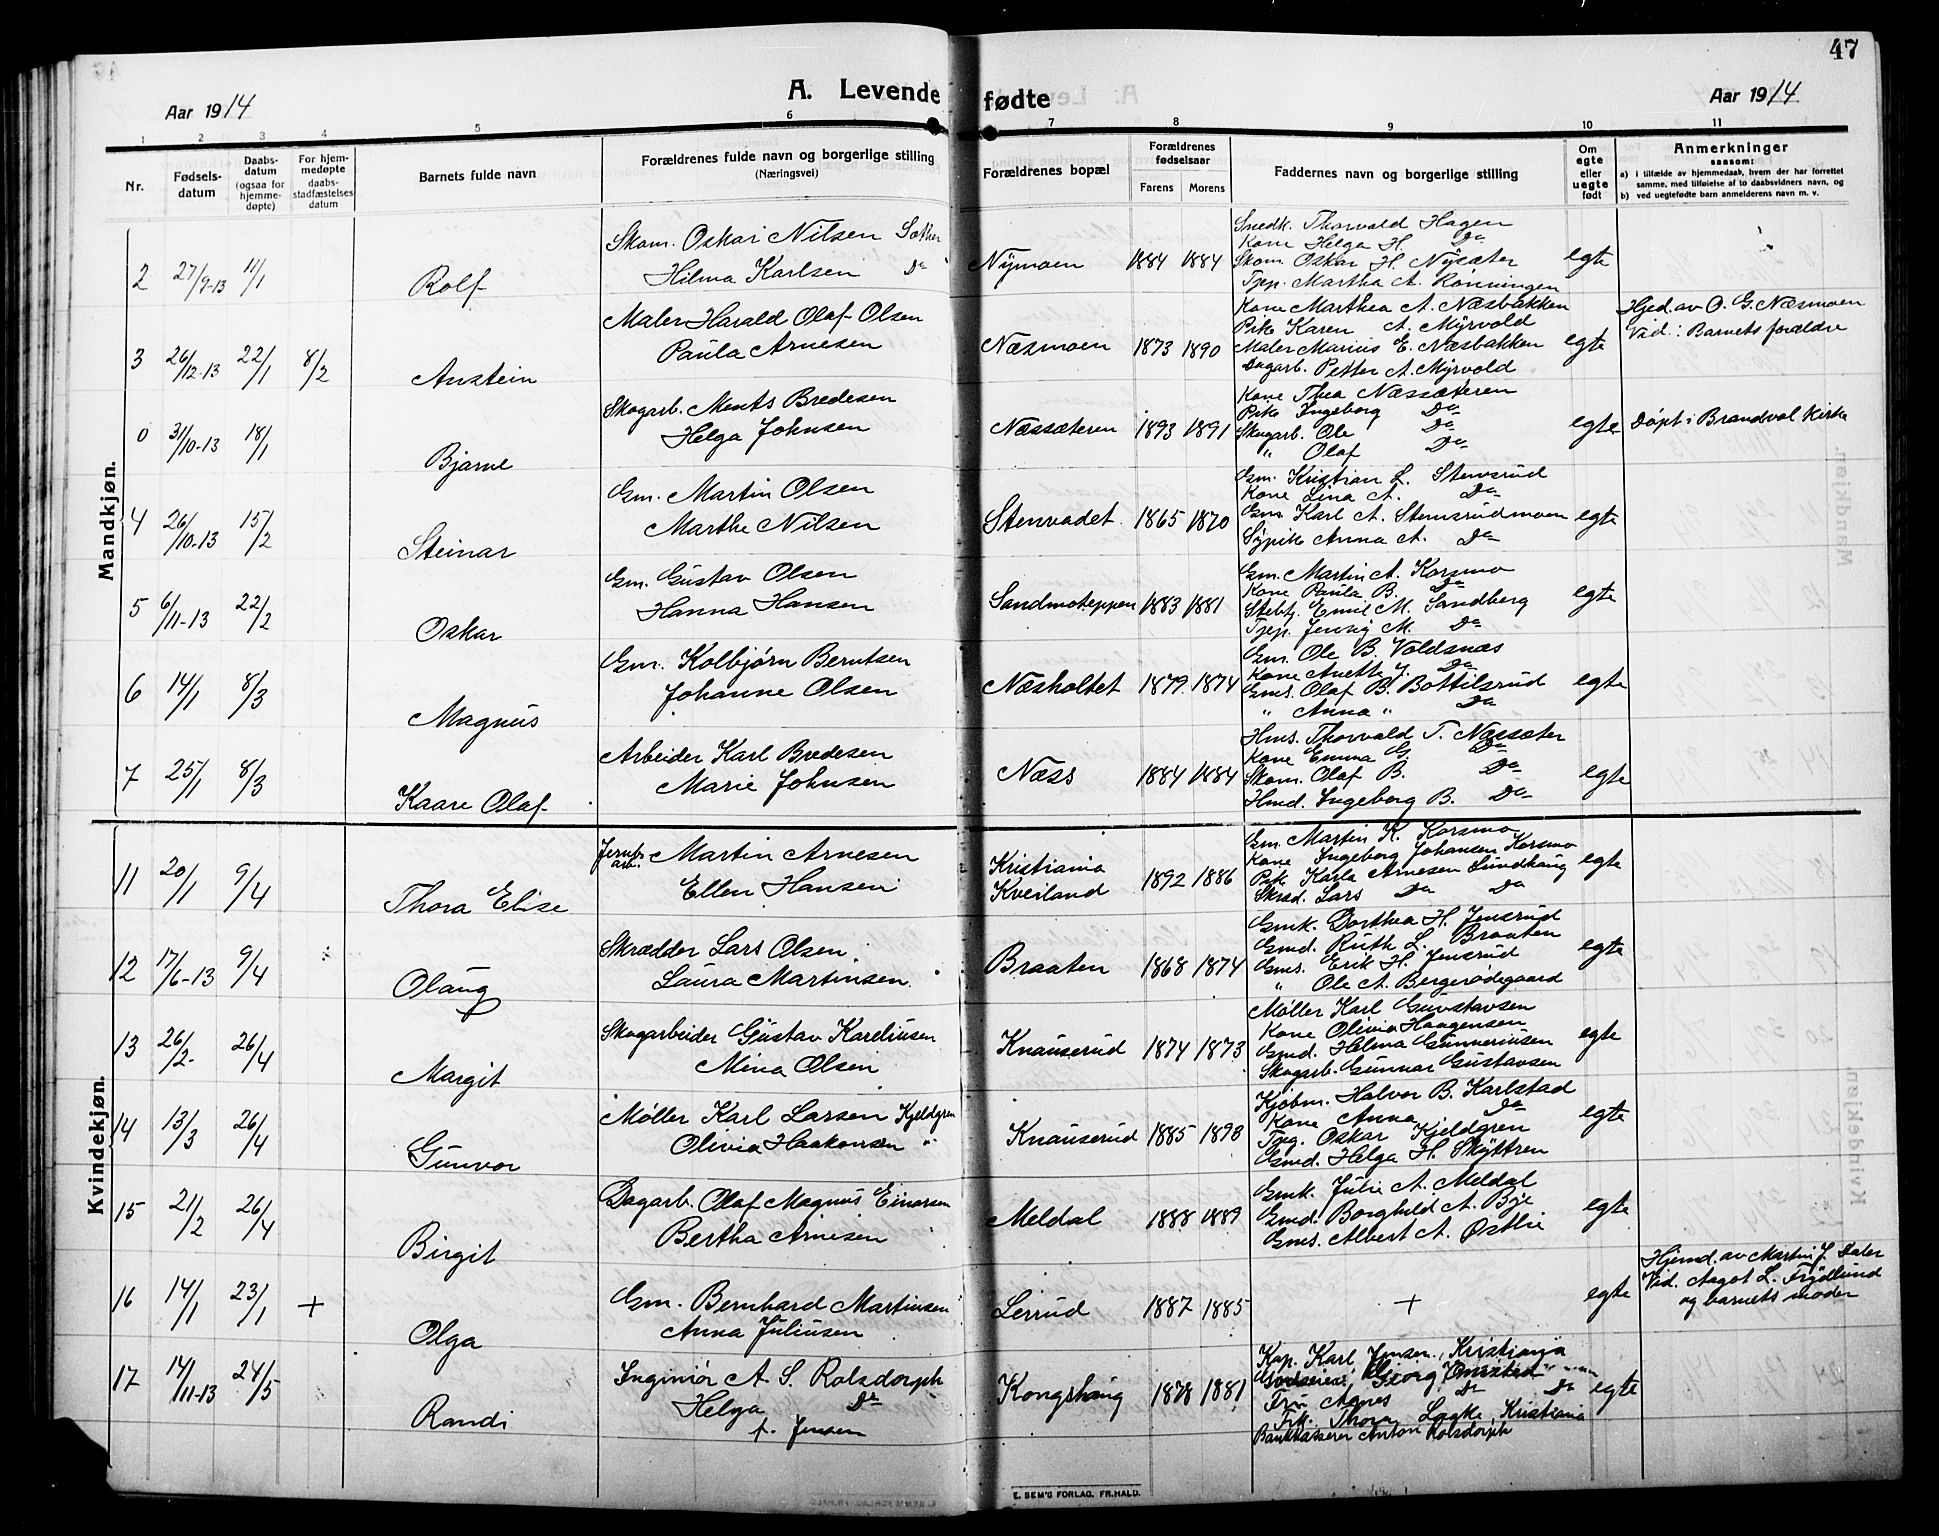 47
Aar 1914
A. Levende fødte
Aar 1914
1 2 3 4 5 6 7 8 9 10 11
Nr.
Fødsels-
datum
Daabs-
datum
(ogsaa for
hjemme-
døpte)
For hjem-
medøpte
daabs-
stadfæstelses
datum
Barnets fulde navn
Forældrenes fulde navn og borgerlige stilling
(Næringsvei)
Forældrenes bopæl
Forældrenes
fødselsaar
Farens
Morens
Faddernes navn og borgerlige stilling
Om
egte
eller
uegte
født
Anmerkninger
saasom:
a) i tilfælde av hjemmedaab, hvem der har forrettet
samme, med tilføielse af to daabsvidners navn, og
b) ved uegtefødte barn anmelderens navn m. v.
Mandkjøn.
2 27/9-13 11/1 Rolf
Skom. Oskar Nilsen Sæther
Hilma Karlsen Do
Nymoen 1884 1884
Snedk. Thorvald Hagen
Kone Helga H. Do
Skom. Oskar H. Nysæter
Tjep. Martha A. Rønningen
egte
3 26/12-13 22/1 8/2 Anstein
Maler Harald Olaf Olsen
Paula Arnesen
Næsmoen 1873 1890
Kone Marthea A. Næsbakken
Pike Karen A. Myrvold
Maler Marius E. Næsbakken
Dagarb. Petter A. Myrvold
egte
Hjed. av O. G. Næsmoen
Vid.: Barnets forældre
0 31/10-13 18/1 Bjarne
Skogarb. Ments Bredesen
Helga Johnsen
Næssæteren 1893 1891
Kone Thea Næssæteren
Pike Ingeborg Do
Skogarb. Ole Do
" Olaf Do
egte
Døpt i Brandval Kirke
4 26/10-13 15/2 Steinar
Gm. Martin Olsen
Marthe Nilsen
Stenvadet 1865 1870
Gm. Kristian L. Stensrud
Kone Lina A. Do
Gm. Karl A. Stensrudmoen
Sypike Anna A. Do
egte
5 6/11-13 22/2 Oskar
Gm. Gustav Olsen
Hanna Hansen
Sandmoteppen 1883 1881
Gm. Martin A. Korsmo
Kone Paula B. Do
Emil M. Sandberg
Tjep. Jenny M. Do
egte
6 14/1 8/3 Magnus
Gm. Kolbjørn Berntsen
Johanne Olsen
Næsholtet 1879 1874
Gm. Ole B. Voldsnæs
Kone Anette J. Do
Gms. Olaf B. Bottilsrud
" Anna " Do
egte
7 25/1 8/3 Kaare Olaf
Arbeider Karl Bredesen
Marie Johnsen
Næss 1884 1884
Hms. Thorvald T. Næssæter
Kone Emma G. Do
Skom. Olaf B. Do
Hmd. Ingeborg B. Do
egte
Kvindekjøn.
11 20/1 9/4 Thora Elise
Jernb.
arb. Martin Arnesen
Ellen Hansen
Kristiania
Kveiland 1892 1886
Gm. Martin K. Korsmo
Kone Ingeborg Johansen Korsmo
Pik Karla Arnesen Lundhaug
Skræd. Lars Do Do
egte
12 17/6-13 9/4 Olaug
Skrædder Lars Olsen
Laura Martinsen
Braaten 1868 1874
Gmk. Dorthea H. Jensrud
Gmd. Ruth L. Braaten
Gms. Erik H. Jensrud
" Ole A. Bergerødegaard
egte
13 26/2- 26/4 Margit
Skogarbeider Gustav Kareliusen
Mina Olsen
Knauserud 1874 1873
Møller Karl Gunstavsen
Kone Olivia Haagensen
Gmd. Helma Gunneriusen
Skogarb. Gunnar Gustavsen
egte
14 13/3 26/4 Gunvor
Møller Karl Larsen Kjeldgren
Olivia Haakonsen "
Knauserud 1885 1898
Kjøbm. Halvor B. Karlstad
Kone Anna Do
Tjeg. Oskar Kjeldgren
Gmd. Helga H. Skyttren
egte
15 21/2 26/4 Birgit
Dagarb. Olaf Magnus Einarsen
Bertha Arnesen
Meldal 1888 1889
Gmk. Julie A. Meldal
Gmd. Borghild A. Bye
Gms. Albert A. Østlie
egte
16 14/1 23/1 + Olga
Gm. Bernhard Martinsen
Anna Juliusen
Lerrud 1887 1885
+
egte
Hjemd. av Martin J. Daler
Vid. Aagot L. Frydlund
og barnets moder
17 14/11-13 24/5 Randi
Ingeniør A. S. Rolsdorph
Helga Do
f. Jensen
Kongshaug 1878 1881
Kap. Karl Jensen, Kristiania
Georg Omsted
Fru Agnes Do Do
Frk. Thora Kristiania
Bankkasserer Anton Rolsdorph
egte
E. SEM'S FORLAG, FR.HALD.